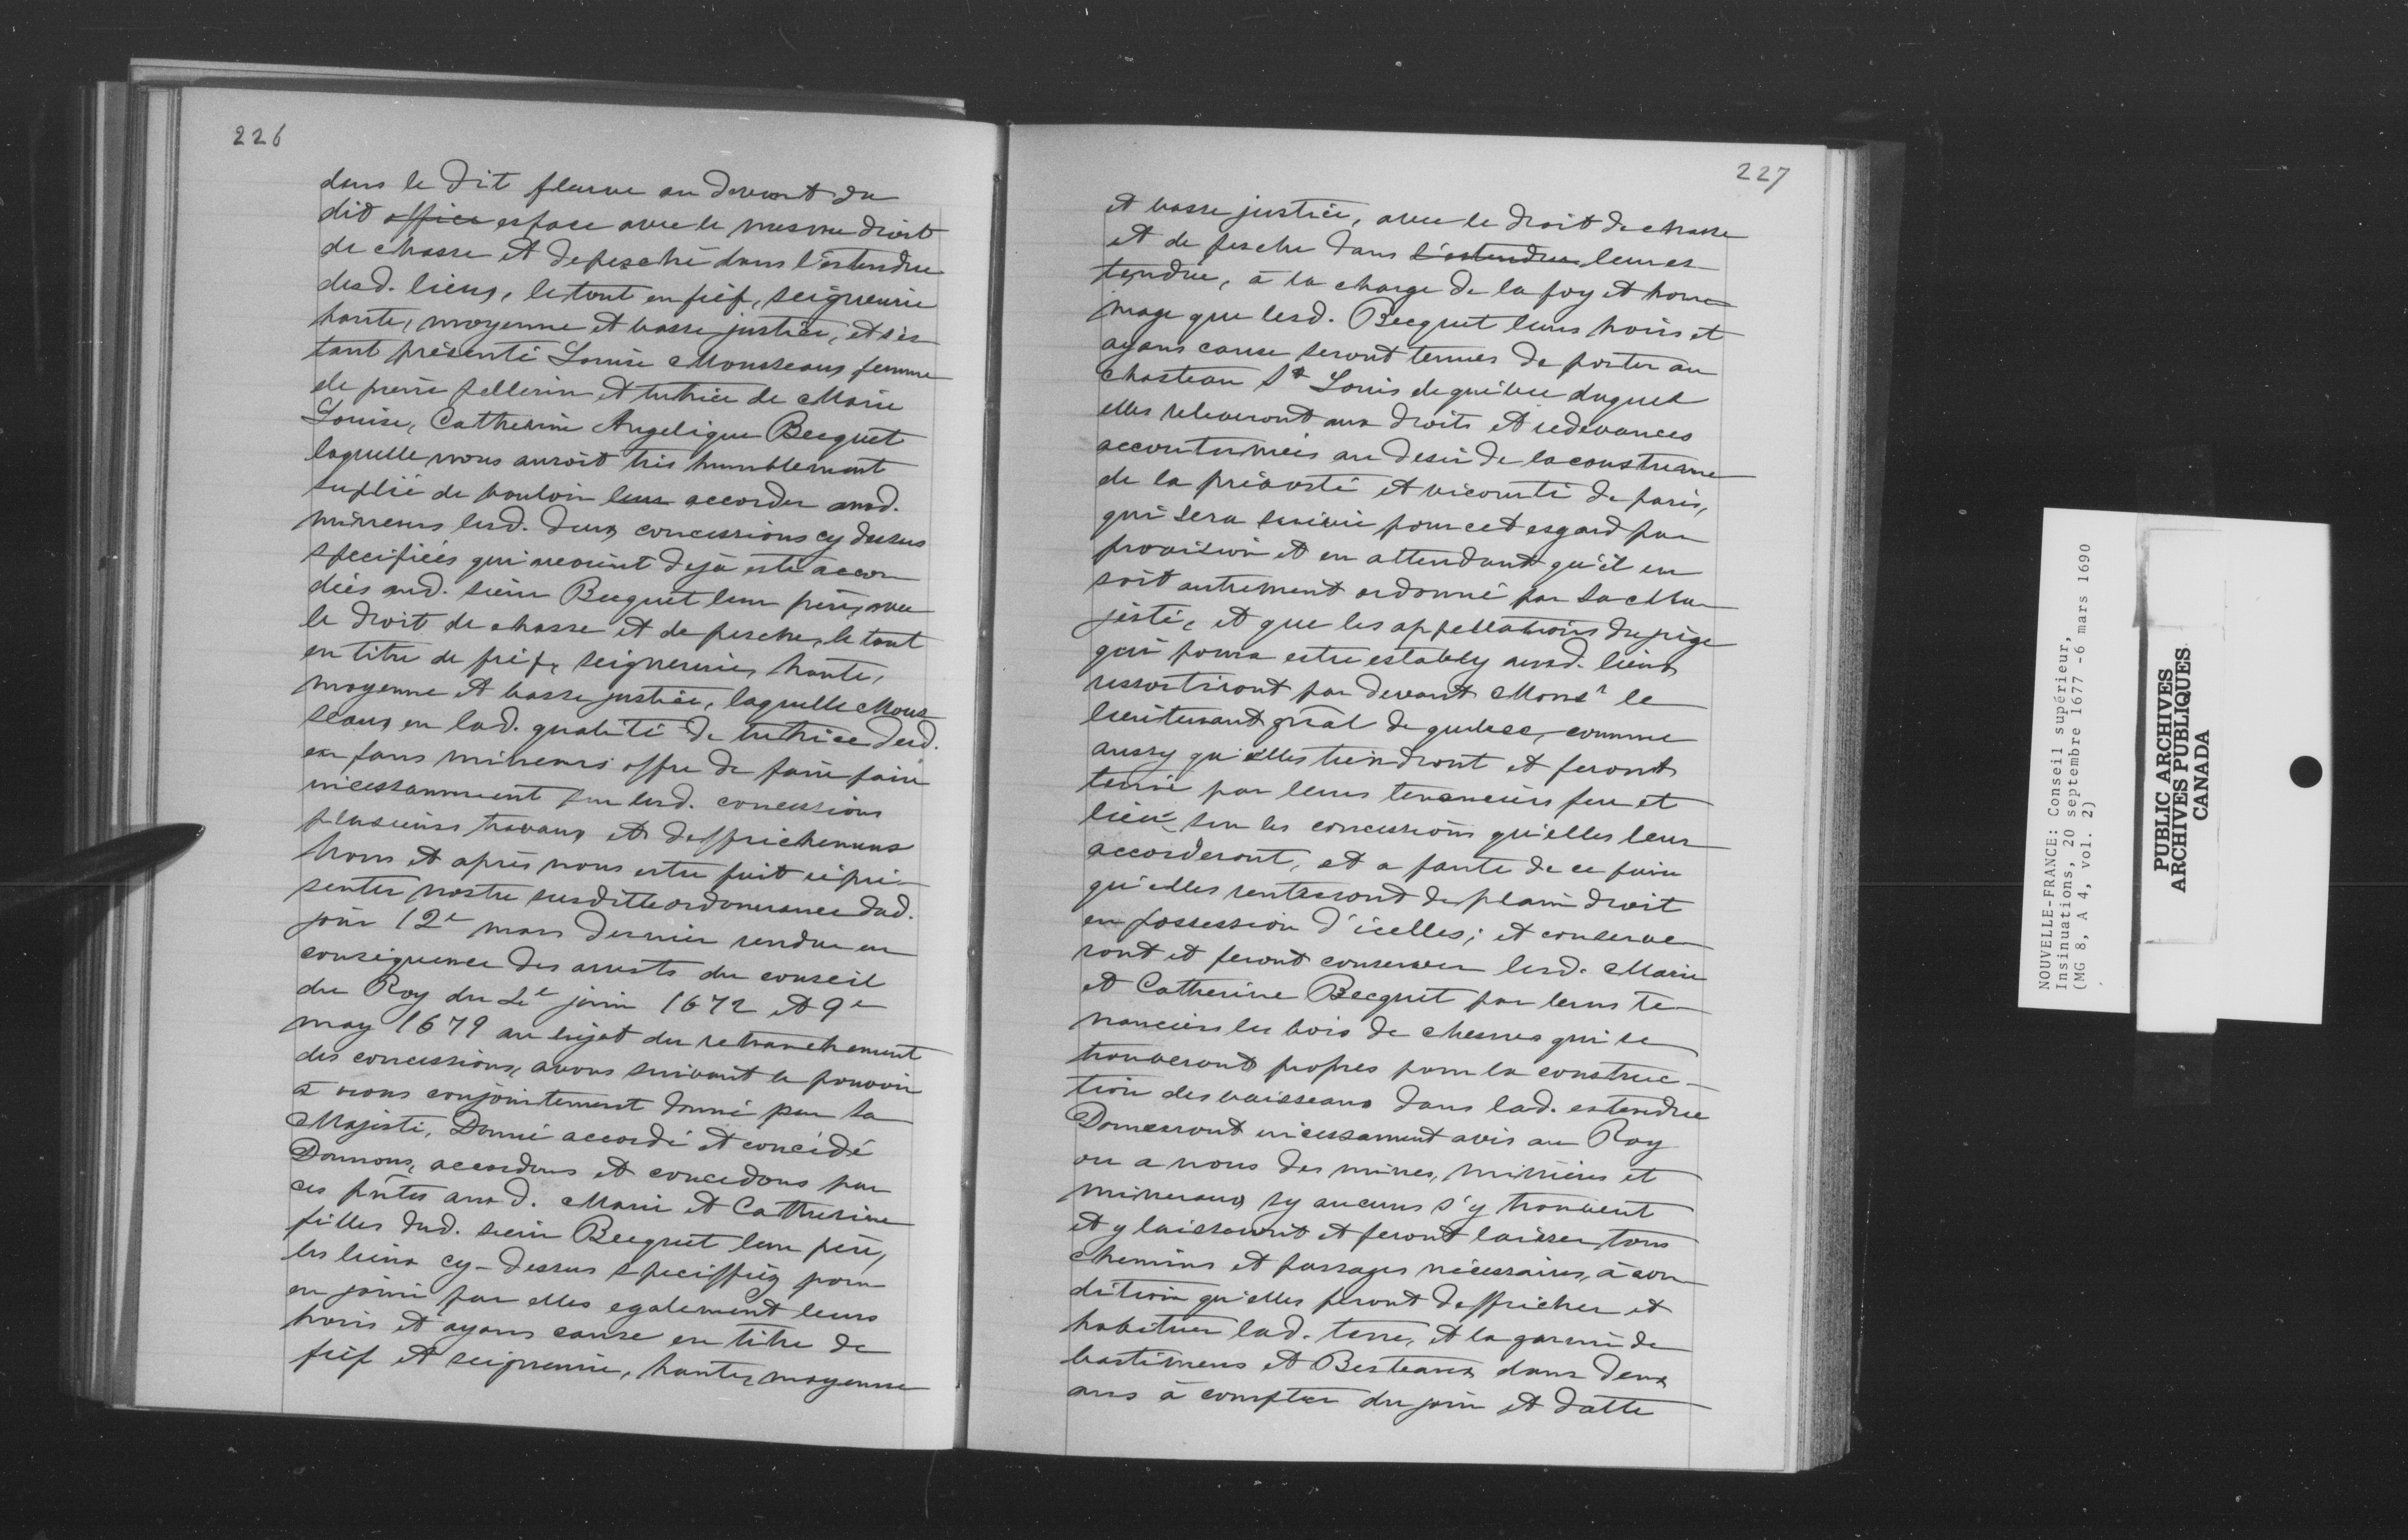 226
dans le dit fleuve au devant du
dit office espace avec le mesme droit
de chasse et de pesche dans l'estendue
desd. lieux, le tout en fief, seigneurie
haute, moyenne et basse justice, et s'es
tant présenté Louise Mousseaux femme
de pierre pellerin et tutrice de Marie
Louise, Catherine Angelique Becquet
laquelle nous auroit très humblement
suplié de vouloir leur accorder ausd.
mineurs lesd. deux concessions cy dessus
specifiées qui avoient dejà esté accor
dées aud. sieur Becquet leur père, avec
le droit de chasse et de pesche, le tout
en titre de fief, seigneurie, haute,
moyenne et basse justice, laquelle Mous
seaux en lad. qualité de tutrice desd.
enfans mineurs offre de faire faire
incessamment sur lesd. concessions
plusieurs travaux et deffrichemens
Nous et après nous estre fait repré-
senter nostre susditte ordonnance dud.
jour 12e mars dernier rendue en
consequence des arrests du conseil
du Roy du 4e juin 1672 et 9e
may 1679 au sujet du retranchement
des concessions, avons suivant le pouvoir
à nous conjointement donné par Sa
Majesté, Donné accordé et concédé
Donnons, accordons et concedons par
ces pntes aux d. Marie et Catherine
filles dud. sieur Becquet leur père,
les lieux cy-dessus speciffiez pour
en jouir par elles egalement leurs
hoirs et ayans cause en titre de
fief et seigneurie, haute, moyenne
227
et basse justice, avec le droit de chasse
et de pesche dans l'estendue leur es
tendue, à la charge de la foy et hom
mage que lesd. Becquet leurs hoirs et
ayans cause seront tenues de porter au
Chasteau St Louis de quebec duquel
elles releveront aux droits et redevances
accoutumées au desir de la coustume
de la prévosté et vicomté de paris,
qui sera suivie pour cet esgard par
provision et en attendant qu'il en
soit autrement ordonné par Sa Ma
jesté, et que les appellations du juge
qui poura estre estably ausd. lieux
ressortiront par devant Monsr le
lieutenant gñal de quebec, comme
aussy qu'elles tiendront et feront
tenir par leurs tenanciers feu et
lieu sur les concessions qu'elles leur
accorderont, et a faute de ce faire
qu'elles rentreront de plain droit
en possession d'icelles; et conserve
ront et feront conserver lesd. Marie
et Catherine Becquet par leurs te-
nanciers les bois de chesnes qui se
trouveront propres pour la construc-
tion des vaisseaux dans lad. estendue
Donneront incessament avis au Roy
ou a nous des mines, minières et
mineraux sy aucuns s'y trouvent
et y laisseront et feront laisser tous
chemins et passages nécessaires, à con
dition qu'elles feront deffricher et
habituer lad. terre, et la garnir de
bastimens et Besteaux dans deux
ans à compter du jour et datte
NOUVELLE-FRANCE: Conseil supérieur,
Insinuations, 20 septembre 1677 -6 mars 1690
(MG 8, A 4, vol. 2)
PUBLIC ARCHIVES
ARCHIVES PUBLIQUES
CANADA